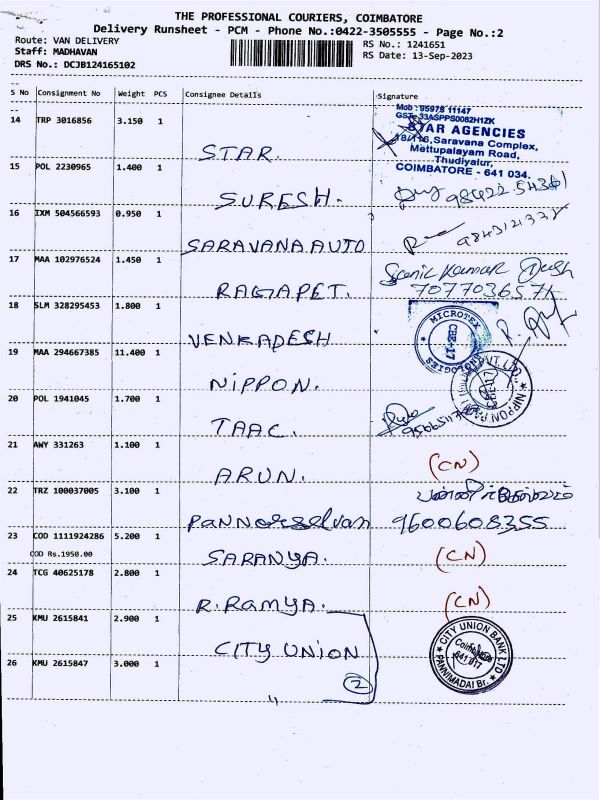 THE PROFESSIONAL COURIERS, COIMBATORE
Delivery Runsheet - PCM - Phone No.:0422-3505555 - Page No.:2
Route: VAN DELIVERY RS No.: 1241651
Staff: MADHAVAN RS Date: 13-Sep-2023
DRS No.: DCJB124165102
S No Consignment No Weight PCS Consignee Details Signature
14 TRP 3016856 3.150 1
Mob : 95978 11147
GST: 33ASPPS0082H1ZK
STAR AGENCIES
18/116, Saravana Complex,
Mettupalayam Road,
Thudiyalur,
COIMBATORE - 641 034.
STAR.
15 POL 2230965 1.400 1
SURESH. 98422 54361
16 IXM 504566593 0.950 1
SARAVANA AUTO 9843121378
17 MAA 102976524 1.450 1
RAGAPET. Kumar Dash
7077036571
18 SLM 328295453 1.800 1
VENKADESH MICROTEX CBE-17
19 MAA 294667385 11.400 1
NIPPON. NIPPON PVT. LTD.
20 POL 1941045 1.700 1
TAAC.
21 AWY 331263 1.100 1
ARUN. (CN)
22 TRZ 100037005 3.100 1
Pannorselvan 9600608355
23 COD 1111924286 5.200 1
COD Rs.1950.00
SARANYA. (CN)
24 TCG 40625178 2.800 1
R. Ramya. (CN)
25 KMU 2615841 2.900 1
CITY UNION CITY UNION BANK LTD Coimbatore 641 017 PANNIMADAI Br.
26 KMU 2615847 3.000 1
2